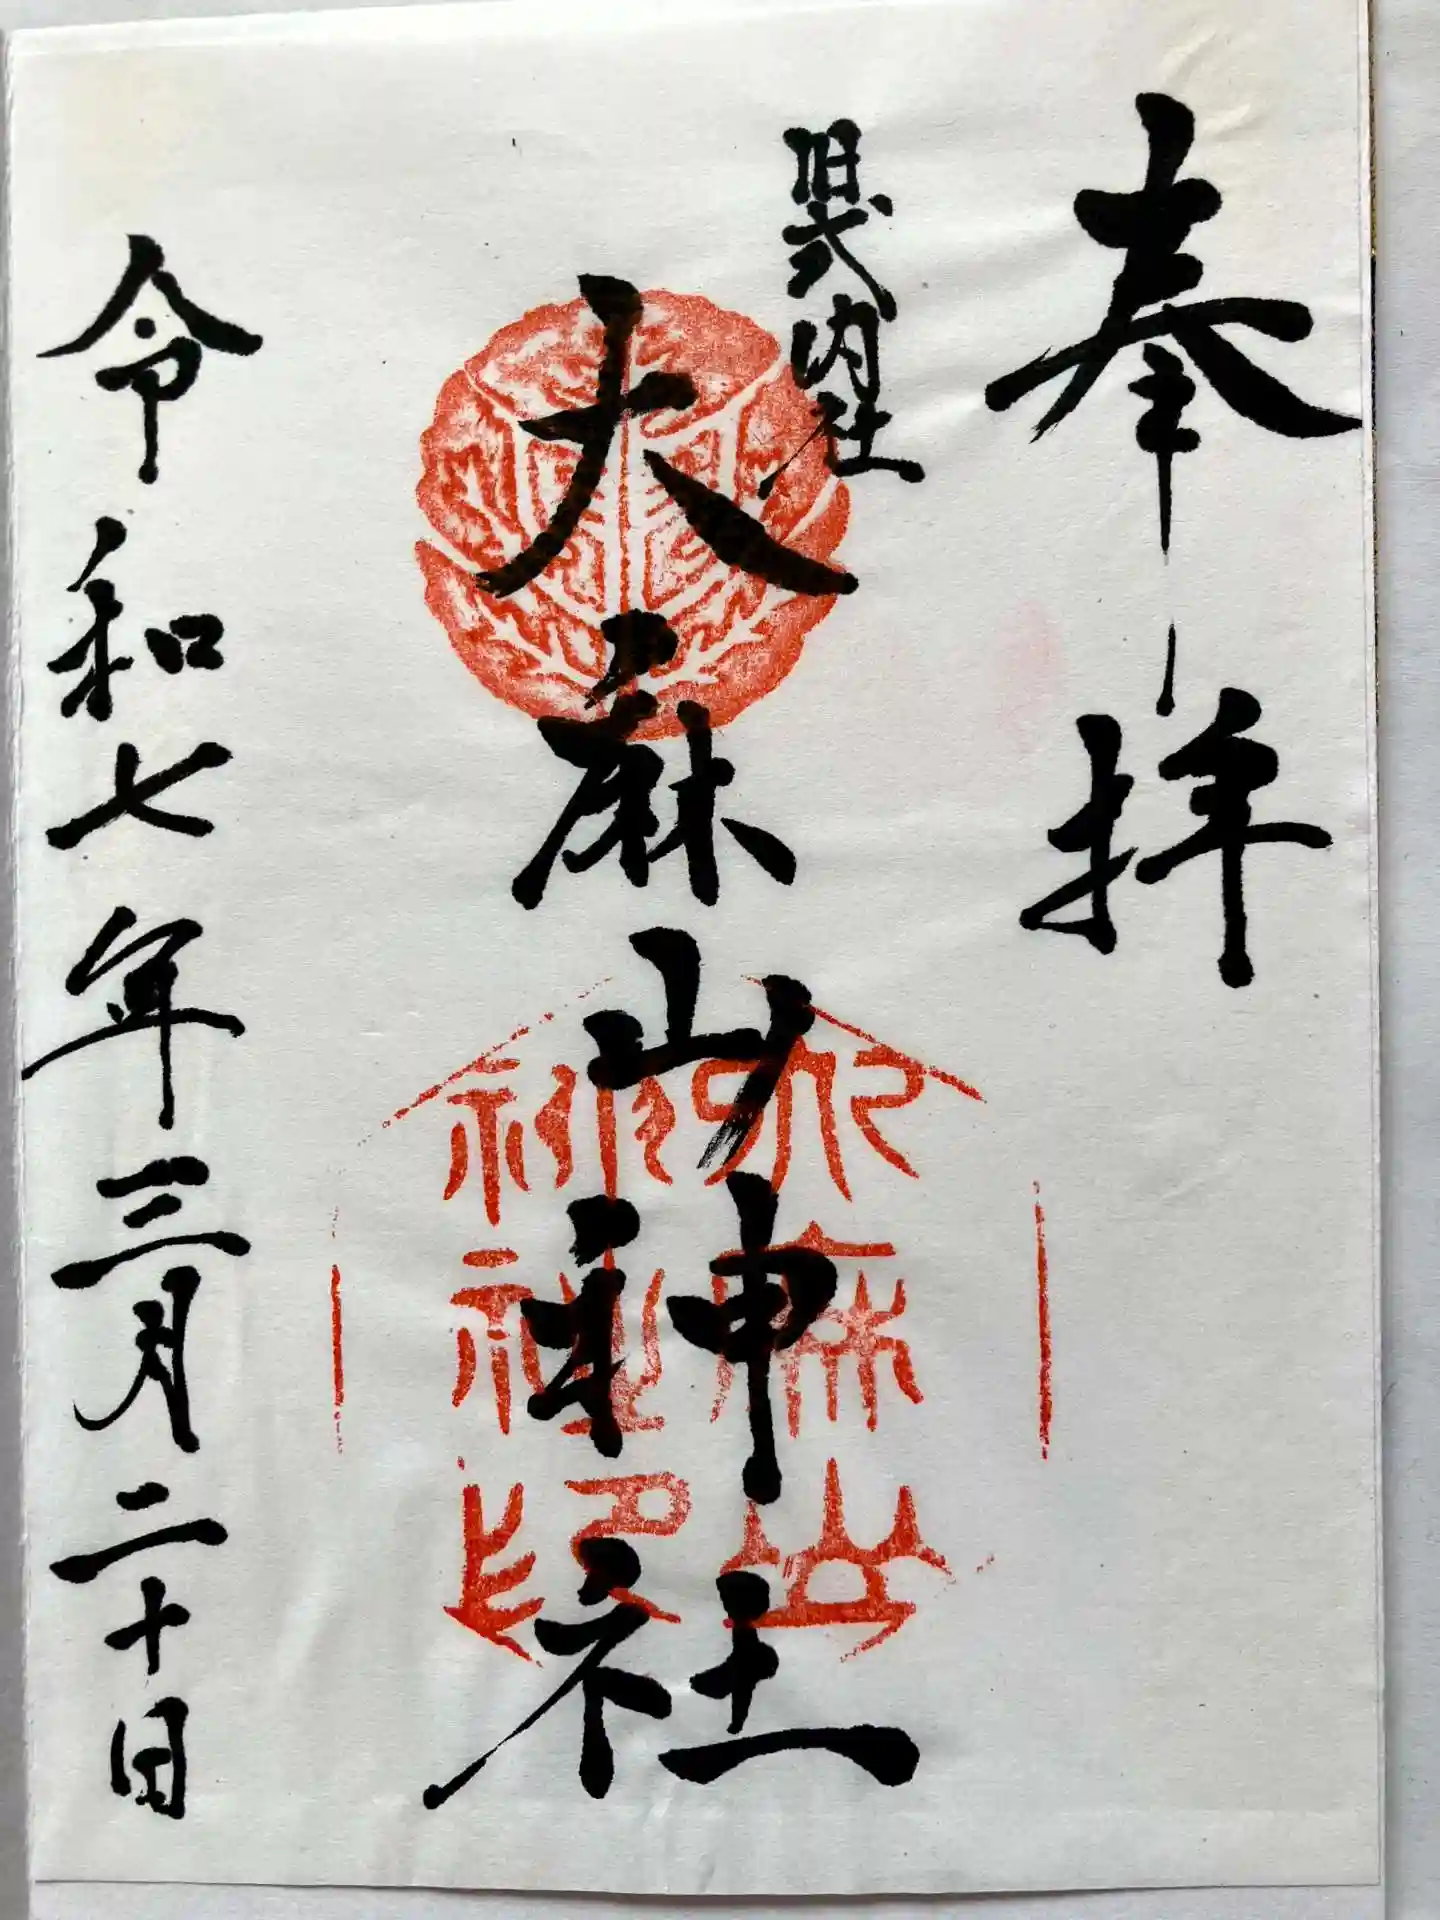 奉拝
旧式内社
大麻山神社
大麻山
神社印
令和七年三月二十日